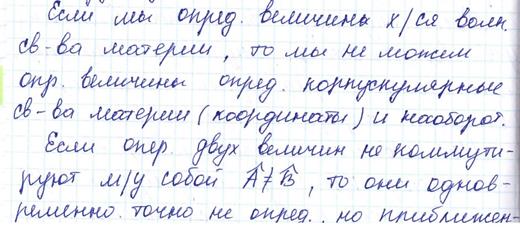 Если мы опред. величины х/ся волн.
св-ва материи, то мы не можем
опр. величины опред. корпускулярные
св-ва материи (координаты) и наоборот.
Если опер. двух величин не коммути-
руют м/у собой Â≠B̂, то они однов-
ременно точно не опред., но приближен-